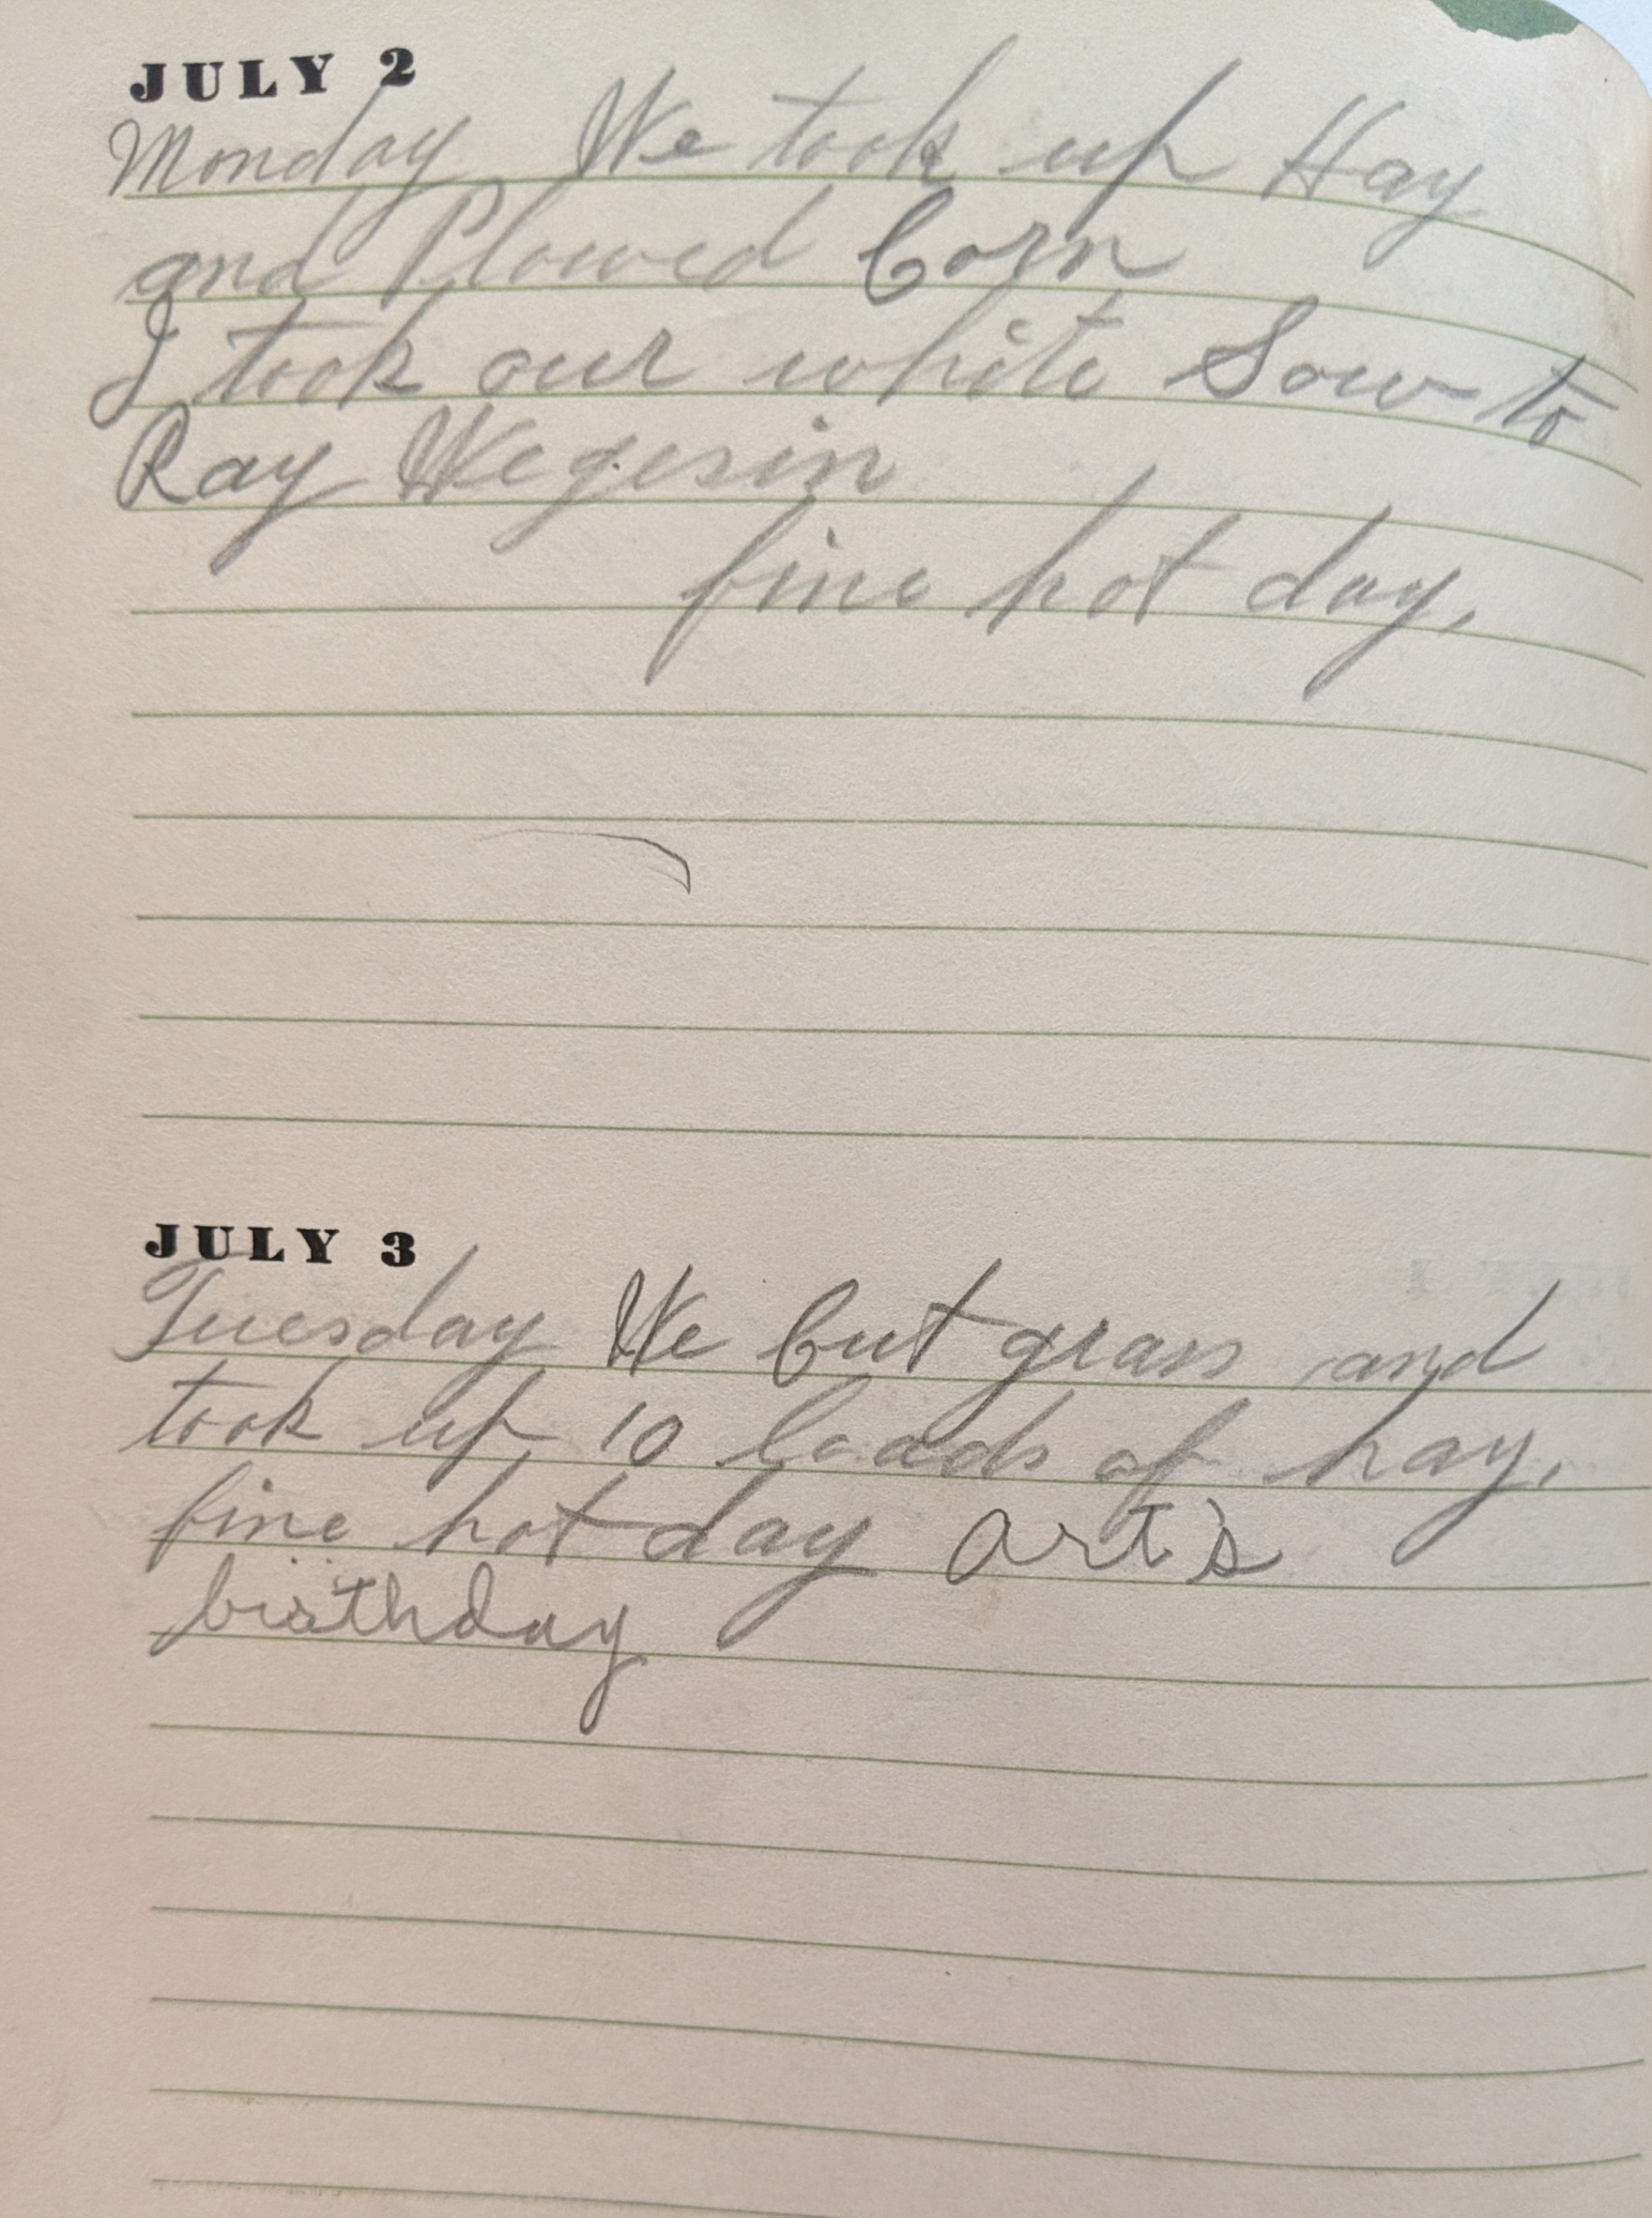 JULY 2
Monday We took up Hay
and Plowed Corn
I took our white Sow to
Ray Wegesin
fine hot day,
JULY 3
Tuesday We Cut grass and
took up 10 loads of hay,
fine hot day Art's
birthday